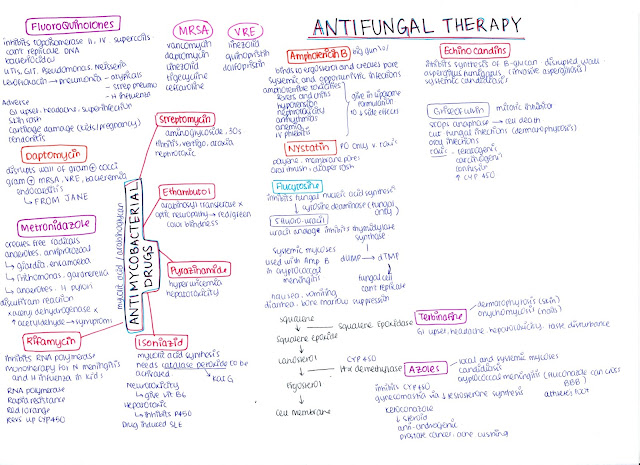 Fluoroquinolones
inhibits topoisomerase II, IV, supercoils
cant replicate DNA
bacteriocidal
UTIs, GIT, Pseudomonas, Neisseria
Levofloxacin → pneumonia - atypicals
- strep pneumo
- H influenza
Adverse
GI upset, headache, superinfection
skin rash
cartilage damage (kids/pregnancy)
tendonitis
Daptomycin
disrupts wall of gram + cocci
gram + MRSA, VRE, bacteremia
endocarditis
↳ FROM JANE
Metronidazole
creates free radicals
anaerobes, antiprotozoal
↳ giardia, entamoeba
↳ trichomonas, gardnerella
↳ anaerobes, H pylori
disulfiram reaction
x acety dehydrogenase x
↑ acetaldehyde → symptoms
Rifamycin
inhibits RNA polymerase
monotherapy for N meningitis
and H influenza in kids
RNA polymerase
Rapid resistance
Red/orange
Revs up CYP450
MRSA
vancomycin
daptomycin
linezolid
tigecycline
ceftaroline
VRE
linezolid
quinopristin
dalfopristin
mycolic acid / arabinoglycan
ANTIMYCOBACTERIAL DRUGS
Streptomycin
aminoglycoside, 30s
tinnitis, vertigo, ataxia
nephrotoxic
Ethambutol
arabinosyl transferase x
optic neuropathy → red/green
color blindness
Pyrazinamide
hyperuricemia
hepatotoxicity
Isoniazid
mycolic acid synthesis
needs catalase peroxide to be
activated
↳ Kat G
Neurotoxicity
↳ give vit B6
Hepatotoxic
↳ inhibits P450
Drug induced SLE
ANTIFUNGAL THERAPY
Amphotericin B
big gun o/
binds to ergosterol and creates pore
systemic and opportunistic infections
amphoterrible toxicities
fevers and chills
hypotension
nephrotoxicity
arrhythmias
anemia
IV phlebitis
give in liposome
formulation
to ↓ side effects
Nystatin
PO only v. toxic
polyene, membrane pores
oral thrush, diaper rash
Flucytosine
inhibits fungal nucleic acid synthesis
↓ cytosine deaminase (fungal
only)
5 fluoro-uracil
uracil analogue inhibits thymidylate
synthase
systemic mycoses
used with Amp B
in cryptococcal
meningitis
dUMP → dTMP
fungal cell
cant replicate
nausea, vomiting,
diarrhea, bone marrow suppression
Squalene
Squalene Epoxidase
Squalene epoxide
Lanosterol
CYP450
14α demethylase
Ergosterol
Cell Membrane
Echinocandins
inhibits synthesis of B-glucan disrupted wall
aspergillus fumigatus (invasive aspergillosis)
systemic candidiasis
Griseofulvin
mitotic inhibitor
stops anaphase → cell death
cut fungal infections (dermatophytosis)
oral infections
toxic - teratogenic
carcinogenic
confusion
↑ CYP 450
Terbinafine
dermatophytosis (skin)
onychomycosis (nails)
GI upset, headache, hepatotoxicity, taste disturbance
Azoles
local and systemic mycoses
candidiasis
cryptococcal meningitis (fluconazole can cross
BBB)
athletes foot
inhibits CYP450
gynecomastia via ↓ testosterone synthesis
ketoconazole
↓ steroid
anti-androgenic
prostate cancer, acne cushing